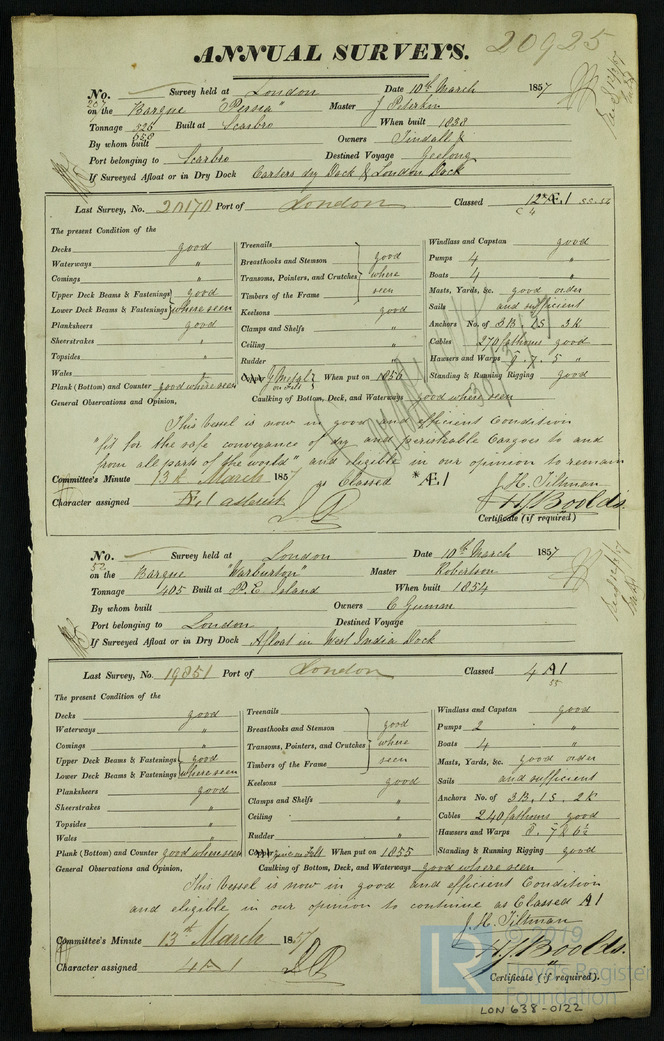 ANNUAL SURVEYS. 20925
No. — Survey held at London Date 10th March 1857
207
on the Barque "Persia" Master J Peterkin
Tonnage 326 Built at Scarbro When built 1838
By whom built Owners Tindall &
Port belonging to Scarbro Destined Voyage Geelong
If Surveyed Afloat or in Dry Dock Carters dry Dock & London Dock
Last Survey, No. 20170 Port of London Classed 12 * Æ 1
The present Condition of the
Decks good
Waterways "
Comings "
Upper Deck Beams & Fastenings good
Lower Deck Beams & Fastenings where seen
Planksheers good
Sheerstrakes "
Topsides "
Wales "
Plank (Bottom) and Counter good where seen
General Observations and Opinion,
Treenails
Breasthooks and Stemson good
Transoms, Pointers, and Crutches where
Timbers of the Frame seen
Keelsons good
Clamps and Shelfs "
Ceiling "
Rudder "
Y Metal When put on 1856
Caulking of Bottom, Deck, and Waterways good where seen
Windlass and Capstan good
Pumps 4 "
Boats 4 "
Masts, Yards, &c. good order
Sails and sufficient
Anchors No. of 3B. 1S. 3K
Cables 270 fathoms good
Hawsers and Warps 7. 5 "
Standing & Running Rigging good
This Vessel is now in good and efficient Condition
"fit for the safe conveyance of dry and perishable Cargoes to and
from all parts of the world" and eligible in our opinion to remain
as Classed * Æ 1
Committee's Minute 13th March 1857
Character assigned Æ 1
J. H. Tiltman
H. J. Boolds
Certificate (if required)
No. — Survey held at London Date 10th March 1857
52
on the Barque "Warburton" Master Robertson
Tonnage 405 Built at P. E. Island When built 1854
By whom built Owners C Gumm
Port belonging to London Destined Voyage
If Surveyed Afloat or in Dry Dock Afloat in West India Dock
Last Survey, No. 19851 Port of London Classed 4 A 1
55
The present Condition of the
Decks good
Waterways "
Comings "
Upper Deck Beams & Fastenings good
Lower Deck Beams & Fastenings where seen
Planksheers good
Sheerstrakes "
Topsides "
Wales "
Plank (Bottom) and Counter good where seen
General Observations and Opinion,
Treenails
Breasthooks and Stemson good
Transoms, Pointers, and Crutches where
Timbers of the Frame seen
Keelsons good
Clamps and Shelfs "
Ceiling "
Rudder "
When put on 1855
Caulking of Bottom, Deck, and Waterways good where seen
Windlass and Capstan good
Pumps 2 "
Boats 4 "
Masts, Yards, &c. good order
Sails and sufficient
Anchors No. of 3B. 1S. 2K
Cables 240 fathoms good
Hawsers and Warps 8. 7 & 6½
Standing & Running Rigging good
This Vessel is now in good and efficient Condition
and eligible in our opinion to continue as Classed A 1
J. H. Tiltman
Committee's Minute 13th March 1857
H. J. Boolds.
Character assigned 4 A 1
Certificate (if required).
LR
2019
Lloyd's Register
Foundation
LON 638-0122